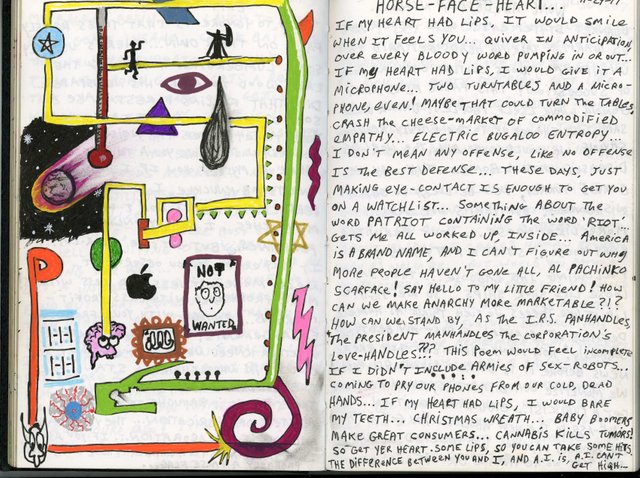 NOT
WANTED
HORSE-FACE-HEART...
IF MY HEART HAD LIPS, IT WOULD SMILE
WHEN IT FEELS YOU... QUIVER IN ANTICIPATION,
OVER EVERY BLOODY WORD PUMPING IN OR OUT...
IF MY HEART HAD LIPS, I WOULD GIVE IT A
MICROPHONE... TWO TURNTABLES AND A MICRO-
PHONE, EVEN! MAYBE THAT COULD TURN THE TABLES,
CRASH THE CHEESE-MARKET OF COMMODIFIED
EMPATHY... ELECTRIC BUGALOO ENTROPY...
I DON'T MEAN ANY OFFENSE, LIKE NO OFFENSE
IS THE BEST DEFENSE... THESE DAYS, JUST
MAKING EYE-CONTACT IS ENOUGH TO GET YOU
ON A WATCHLIST... SOMETHING ABOUT THE
WORD PATRIOT CONTAINING THE WORD 'RIOT'...
GETS ME ALL WORKED UP, INSIDE... AMERICA
IS A BRAND NAME, AND I CAN'T FIGURE OUT WHY
MORE PEOPLE HAVEN'T GONE ALL, AL PACHINKO
SCARFACE! SAY HELLO TO MY LITTLE FRIEND! HOW
CAN WE MAKE ANARCHY MORE MARKETABLE?!?
HOW CAN WE STAND BY AS THE I.R.S. PANHANDLES,
THE PRESIDENT MANHANDLES THE CORPORATION'S
LOVE-HANDLES??? THIS POEM WOULD FEEL INCOMPLETE
IF I DIDN'T INCLUDE ARMIES OF SEX-ROBOTS...
COMING TO PRY OUR PHONES FROM OUR COLD, DEAD
HANDS... IF MY HEART HAD LIPS, I WOULD BARE
MY TEETH... CHRISTMAS WREATH... BABY BOOMERS
MAKE GREAT CONSUMERS... CANNABIS KILLS TUMORS!
SO GET YER HEART SOME LIPS, SO YOU CAN TAKE SOME HITS,
THE DIFFERENCE BETWEEN YOU AND I, AND A.I. IS, A.I. CAN'T
GET HIGH...